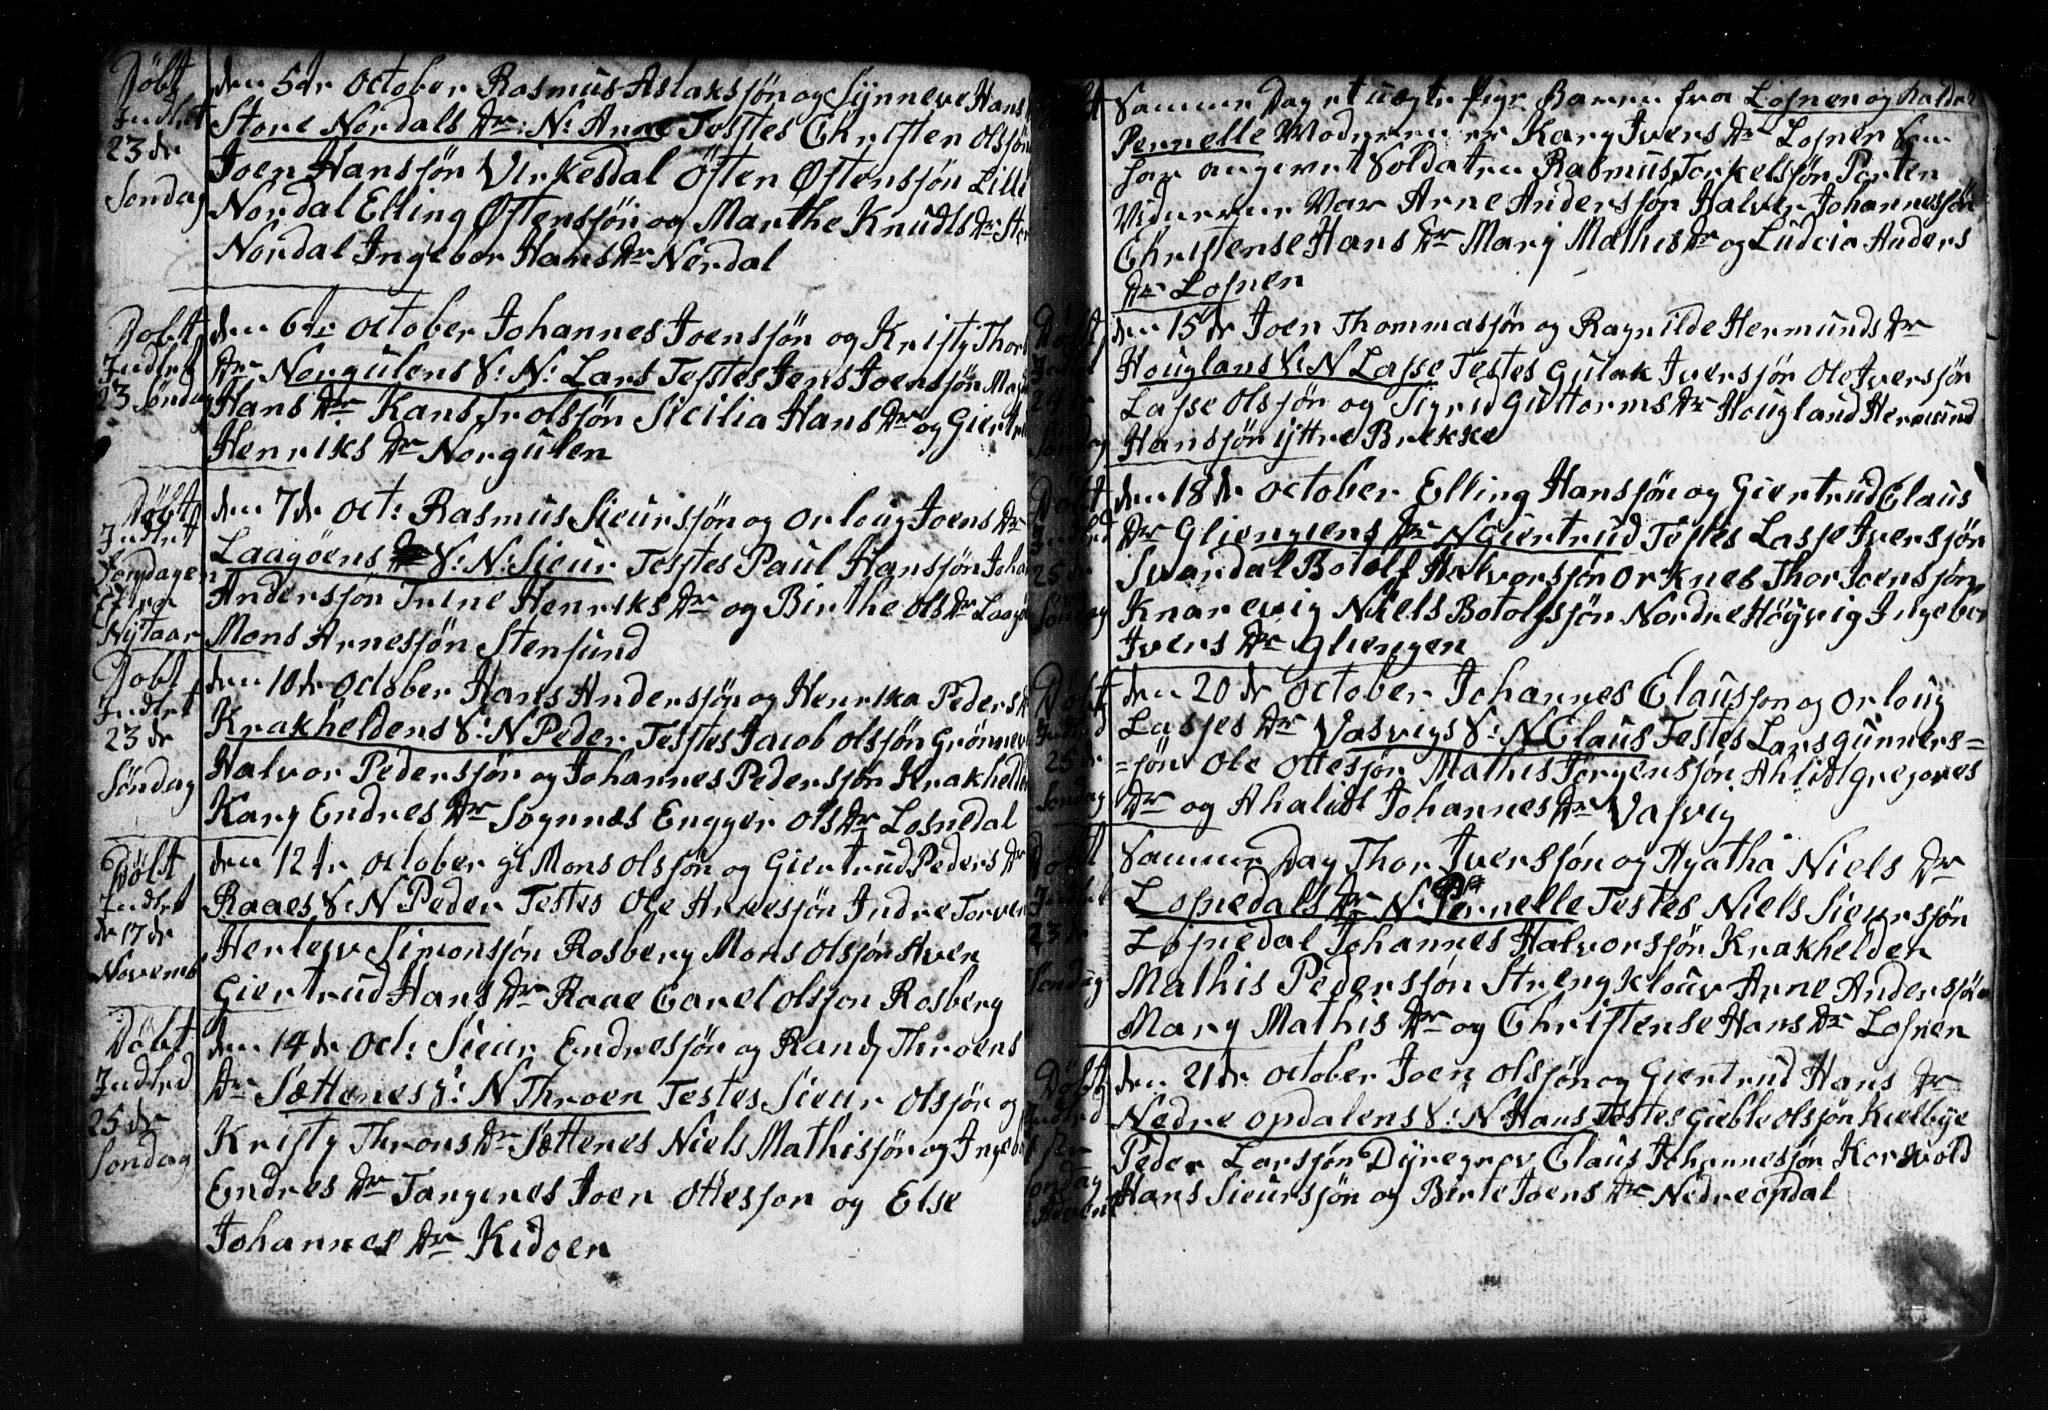 Döbt
Indlet
23 de
Söndag
den 5de October Rasmus Aslaksjön og Synneve Hans
Store Nordals Dr: N: Anne Testes Christen Olsjön
Joen Hansjön Virkesdal Östen Östensjön Lille
Nordal Elling Östensjön og Marthe Knuds Dr Store
Nordal Ingebor Hans Dr Nordal
Döbt
Indlet
23 Söndag
den 6de October Johannes Joensjön og Kristj
Dr Norgulens S: N: Lars Testes Jens Joensjön
Hans Dr Hans Trolsjön Sicilia Hans Dr og
Henriks Dr Norgulen
Döbt
Indlet
Söndagen
Efter
Nytaar
den 7de Oct: Rasmus Sieursjön og Orloug Joens Dr
Laagöens S: N: Sieur Testes Paul Hansjön
Andersjön Trine Henriks Dr og Birthe Ols Dr
Mons Arnesjön Stensund
Döbt
Indlet
23 de
Söndag
den 10de October Hans Andersjön og Henrika Peders
Krakheldens S: N Peder Testes Jacob Olsjön Grönnev
Halvor Pedersjön og Johannes Pedersjön Krakhelde
Karj Endres Dr Sognnæs Engger Ols Dr Losnedal
Döbt
Indlet
de 17 de
Novemb
den 12te October gl Mons Olsjön og Giertrud Peders Dr
Raaes S: N Peder Testes Ole Arnesjön Indre Torven
Herlejv Simonsjön Rosberg Mons Olsjön Hven
Giertrud Hans Dr Raae Carel Olsjon Rosberg
Döbt
Indled
25 de
Söndag
den 14de Oct: Sieur Endresjön og Randj Throens
Dr Sættenes S: N Throen Testes Sieur Olsjön og
Kristj Throns Dr Sættenes Niels Mathisjön og
Endres Dr Tangenes Joen Ottesjon og Else
Johannes Dr Kidoen
Samme Dag et uægte Pige Baren fra Losnen og kaldet
Pernelle Moderen er Karj Ivers Dr Losnen Som
har angivet Soldaten Rasmus Torkelsjön Porten
Vidnerne Var Arne Andersjön Halver Johannesjön
Christense Hans Dr Marj Mathis Dr og Ludcia Anders
Dr Losnen
den 15de Joen Thommasjön og Ragnilde Hermunds Dr
Houglans S: N Lasse Testes Gulak Iversjön Ole Iversjön
Lasse Olsjön og Sigrid Guttorms Dr Hougland Hermund
Hansjön yttre Brekke
Döbt
Indled
25 de
Söndag
den 18de October Elling Hansjön og Giertrud Claus
Dr Gliengiens Dr N Giertrud Testes Lasse Iversjön
Svardal Botolf Halversjön Orknes Thor Joensjön
Knarevig Niels Botolfsjön Nordre Höyvig Ingebor
Ivers Dr Gliengen
Döbt
Indled
25 de
Söndag
den 20de October Johannes Clausjon og Orloug
Lasjes Dr Vasvigs S: N Claus Testes Lars Gunners=
=jön Ole Ottesjön Mathis Jörgensjön Ahlidt Gregores
Dr og Ahalidt Johannes Dr Vasvig
Döbt
23 de
Söndag
Samme Dag Thor Iversjön og Agatha Niels Dr
Losnedals Dr N: Pernelle Testes Niels Sieursjön
Losnedal Johannes Halvorsjön Krakhelden
Mathis Pedersjön Streng Klouv Arne Andersjön
Marj Mathis Dr og Christense Hans Dr Losnen
Döbt
Indled
den 21de October Joen Olsjön og Giertrud Hans Dr
Nedre Opdalens S: N Hans Testes Gieble Olsjön Kielbye
Peder Larsjön Dyregrov Claus Johannesjön Korsvold
Hans Sieursjön og Birte Joens Dr Nedre Opdal